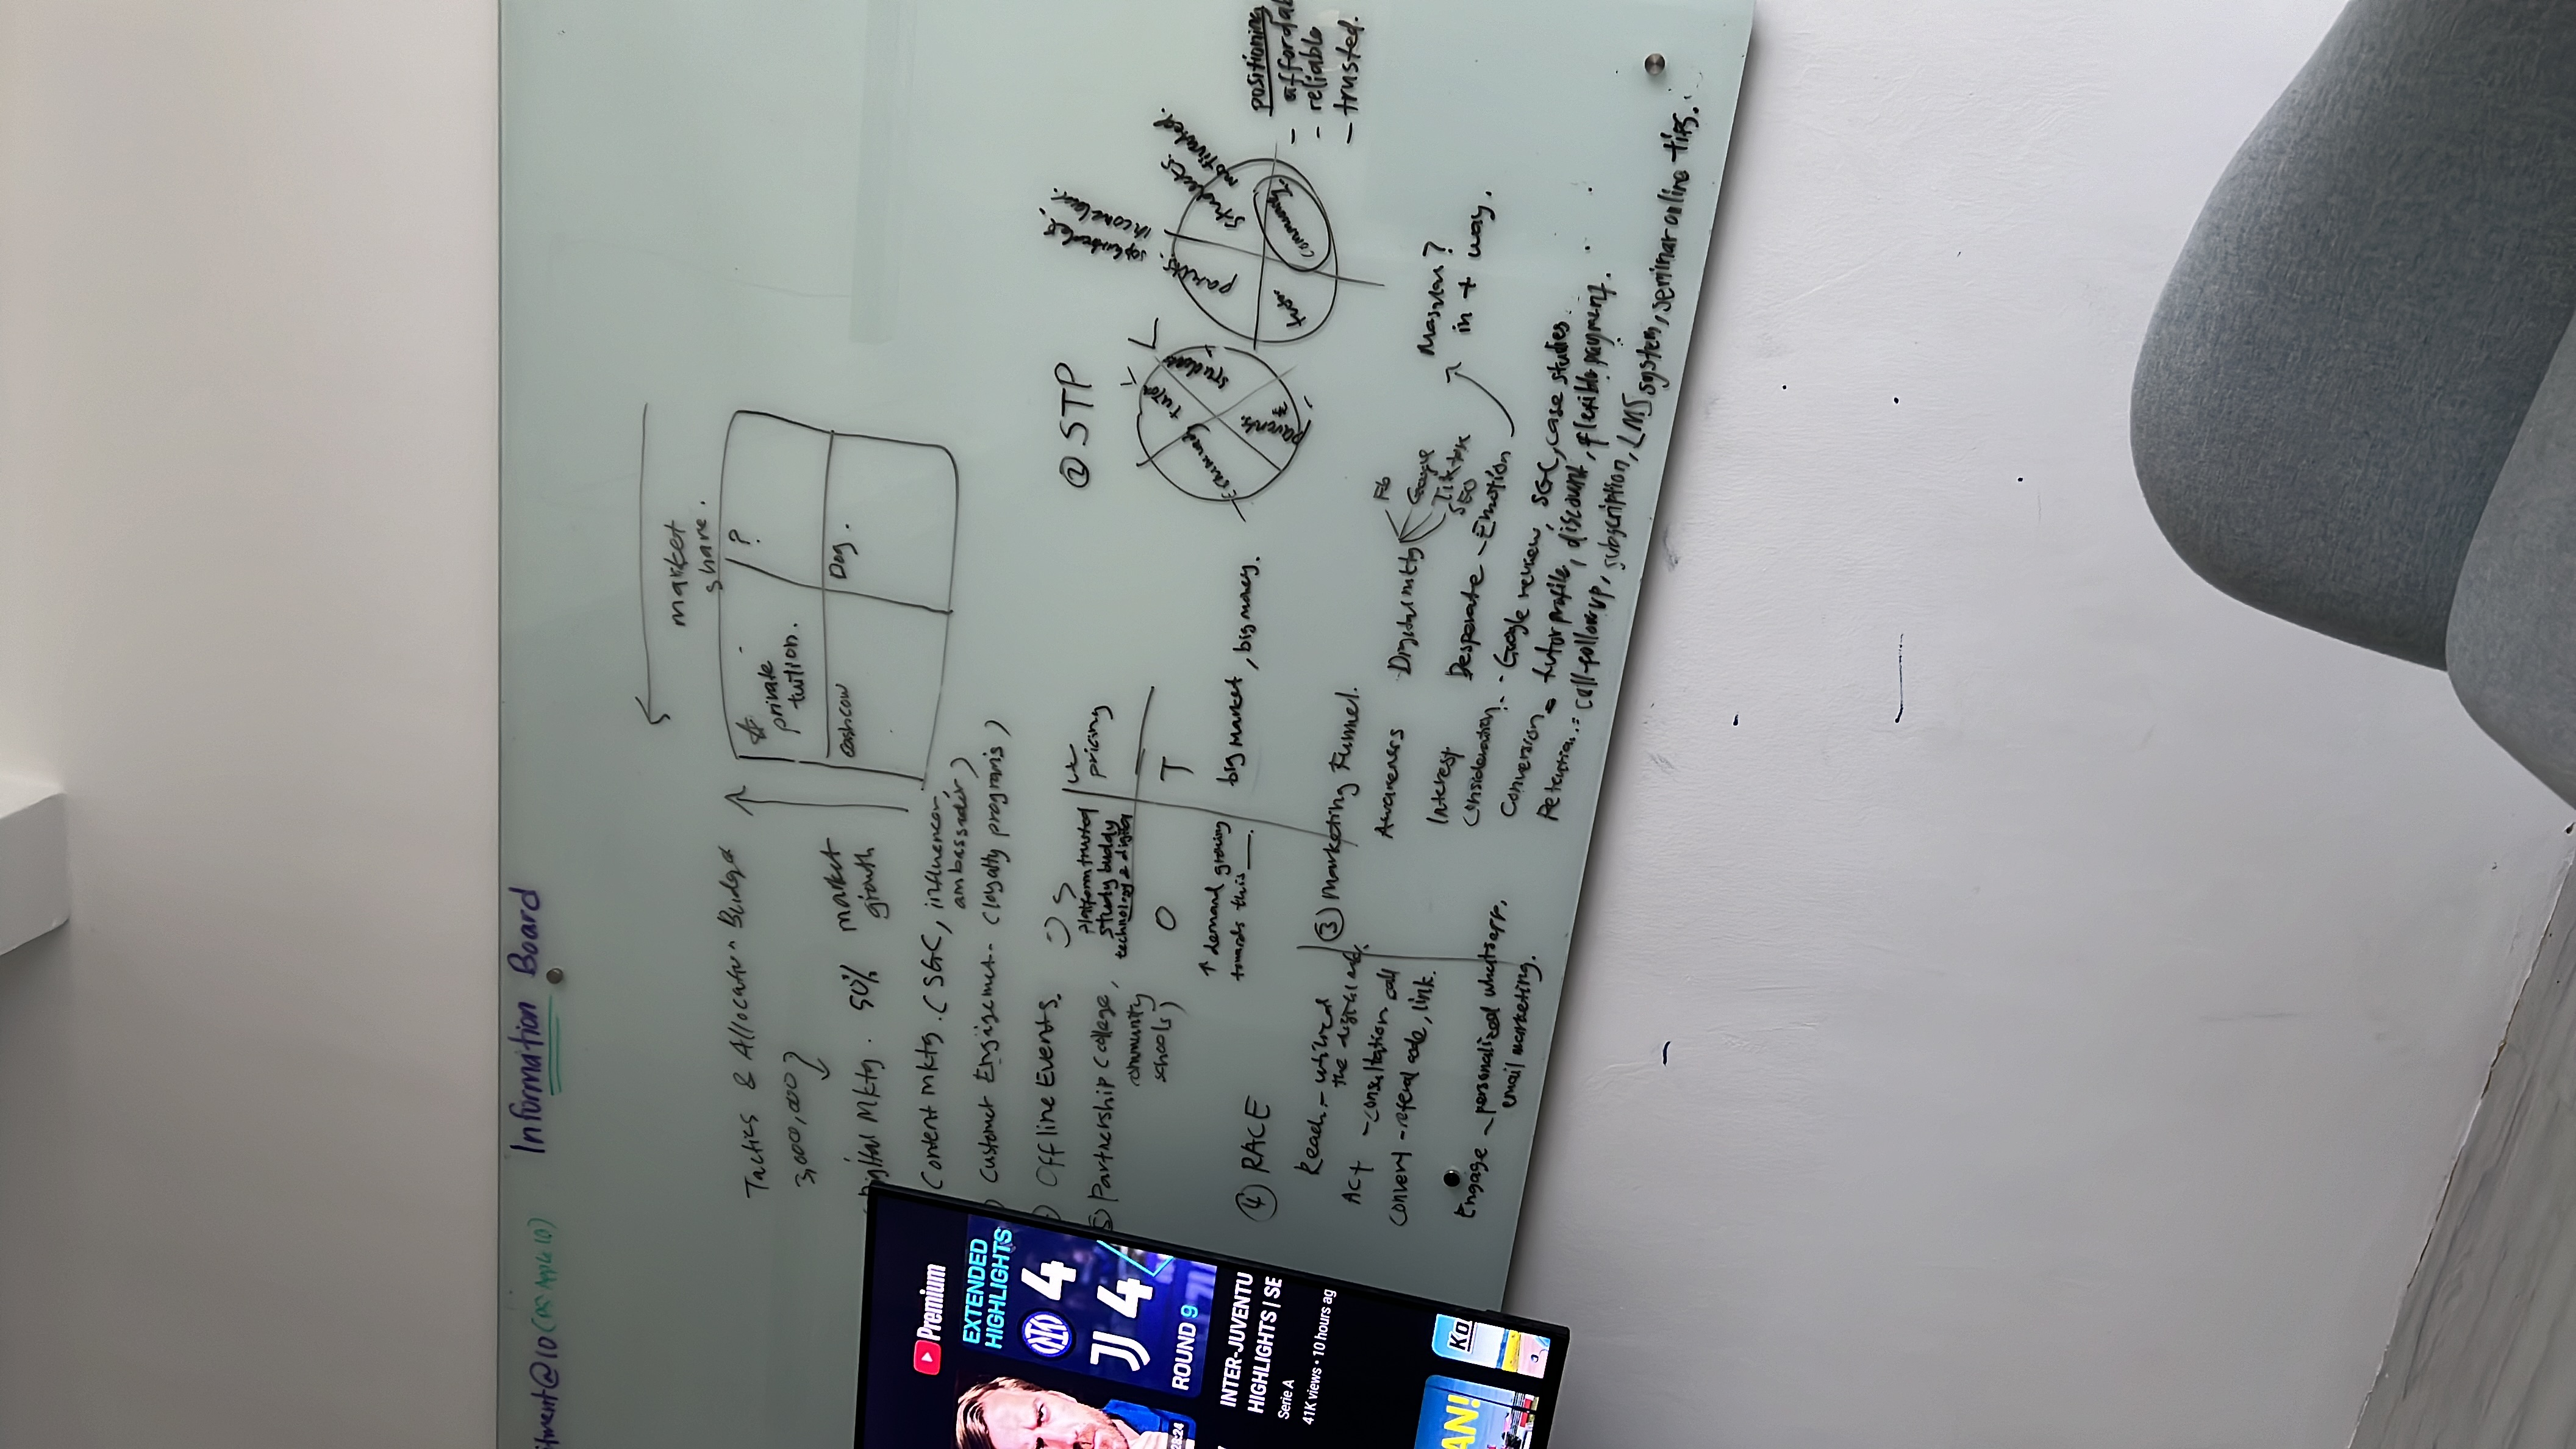 Information Board
market
share.
private
tuition.
?
cashcow
Dog.
Tactics & Allocation Budget
3,000,000
Digital Mktg. 50%
market
growth
Content mktg. (SGC, influencer,
ambassador)
Customer Engagement - (loyalty programs)
Offline Events.
5) Partnership (college,
community
schools)
S
platform trusted
study buddy
technology & digital
pricing
O
↑ demand growing
towards this __.
T
big market, big money.
② STP
community
tutor
students
parents
parents.
students.
motivated.
tutor.
community.
positioning
- reliable
- trusted.
④ RACE
Reach - utilized
the digital
Act - consultation call
Convert - referal code, link.
Engage - personalized whatsapp,
email marketing.
③ Marketing Funnel.
Awareness Digital mktg
Fb
Google
Tiktok
SEO
Interest Desperate - Emotion
in + way.
Consideration. - Google review, SGC, case studies.
Conversion = tutor profile, discount, flexible payment.
Retention.. = call-follow up, subscription, LMS system, seminar online tips.
Premium
EXTENDED
HIGHLIGHTS
4
4
ROUND 9
INTER-JUVENTU
HIGHLIGHTS | SE
Serie A
41K views • 10 hours ag
AN!
Ko